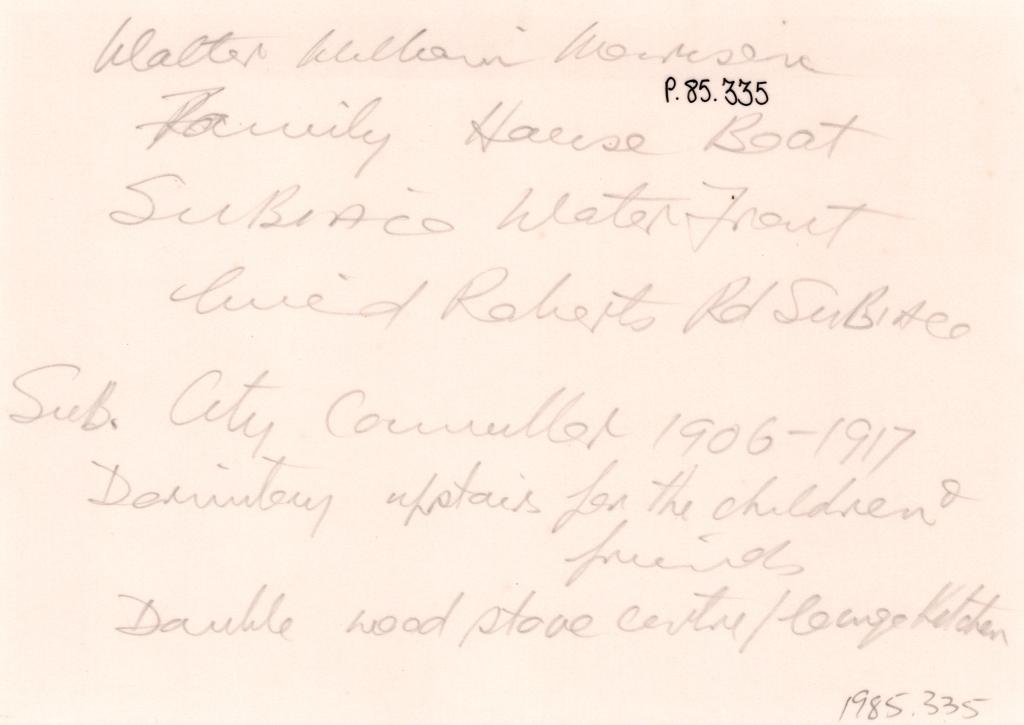 Walter William Morrison
P.85.335
Family House Boat
SUBIACO Water Front
Lived Roberts Rd SUBIACO
Sub. City Councillor 1906-1917
Dormitory upstairs for the children &
friends
Double wood stove centre/lounge Kitchen
1985.335